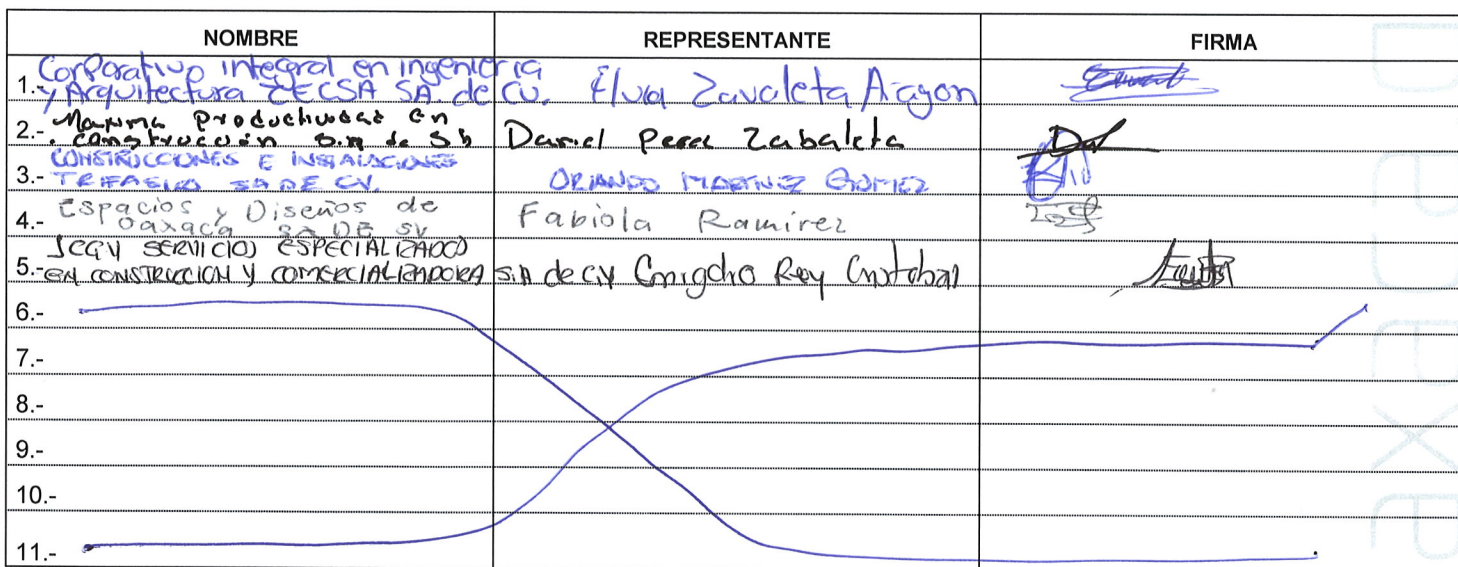 NOMBRE REPRESENTANTE FIRMA
Corporativo integral en ingenieria
1.- y Arquitectura ZECSA SA. de CV. Elvia Zavaleta Aragon
Maxima Productividad en
2.- construcción de Daniel Perez Zabaleta
CONSTRUCCIONES E INSTALACIONES
3.- TRIFASICO SA DE CV. ORLANDO MARTINEZ GOMEZ
Espacios y Diseños de
4.- Oaxaca SA DE SV Fabiola Ramirez
SERVICIOS ESPECIALIZADOS
5.- EN CONSTRUCCION Y COMERCIALIZADORA S.A de CV Rey Cristobal
6.-
7.-
8.-
9.-
10.-
11.-